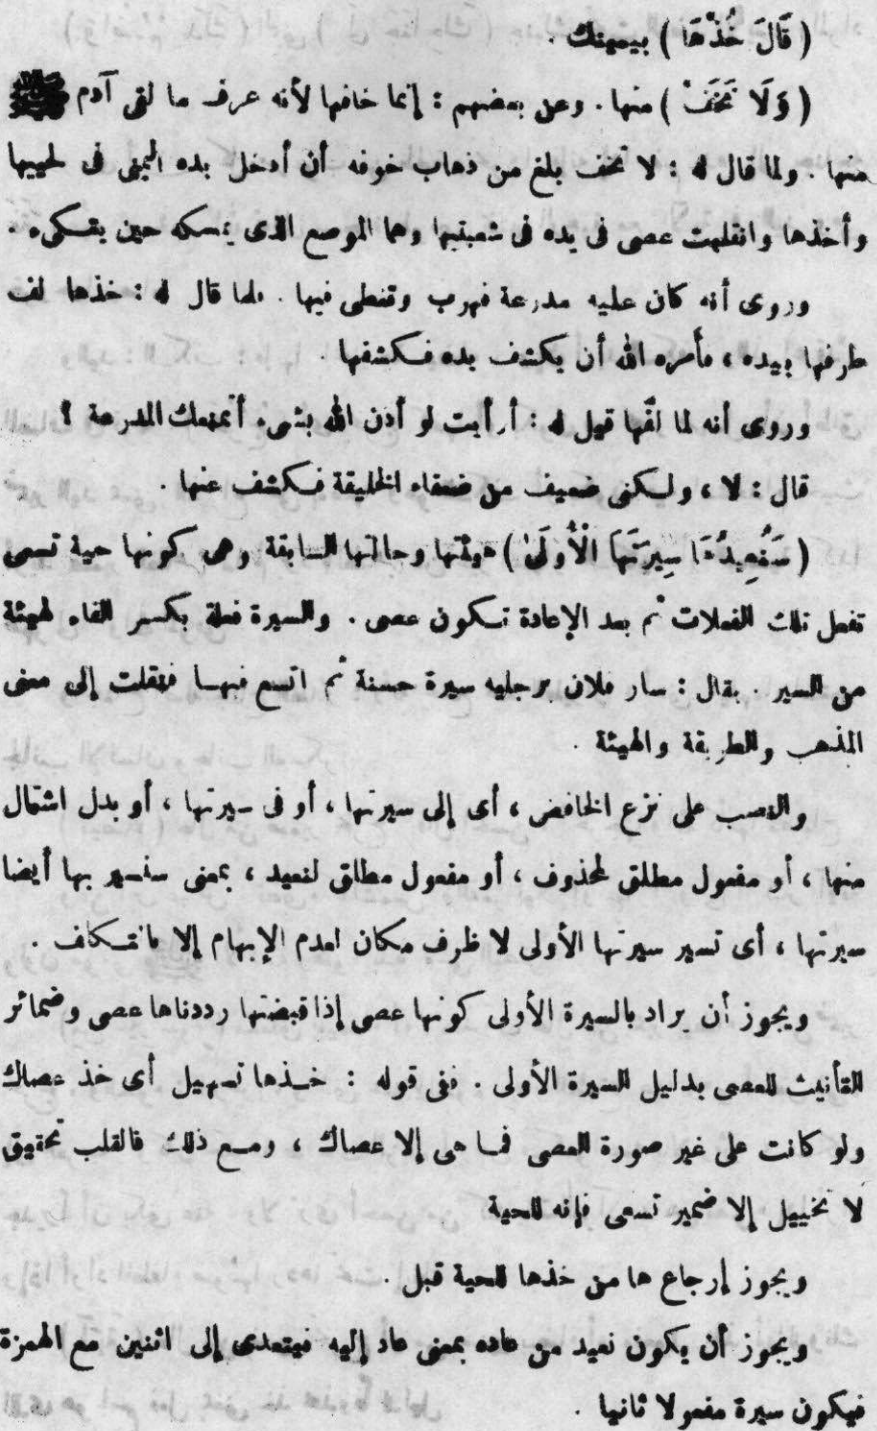 ( قَالَ خُذْهَا ) بيمينك .
( وَلَا تَخَفْ ) منها . وعن بعضهم : إنما خافها لأنه عرف ما لقى آدم ﷺ
منها . ولما قال له : لا تخف بلغ من ذهاب خوفه أن أدخل يده اليمنى فى لحييها
وأخذها وانقلبت عصى فى يده فى شعبتيها وهما الموضع الذى يمسكه حين يتكىء .
وروى أنه كان عليه مدرعة فهرب وتغطى فيها . فلما قال له : خذها لف
طرفها بيده ، فأمره الله أن يكشف يده فكشفها .
وروى أنه لما لفَّها قيل له : أرأيت لو أذن الله بشىء أتمنعك المدرعة ؟
قال : لا ، ولكنى ضعيف من ضعفاء الخليقة فكشف عنها .
( سَنُعِيدُهَا سِيرَتَهَا الْأُولَى ) هيئتها وحالتها السابقة وهى كونها حية تسعى
تفعل تلك الفعلات ثم بعد الإعادة تكون عصى . والسيرة فعلة بكسر الفاء لهيئة
من السير . يقال : سار فلان برجليه سيرة حسنة ثم اتسع فيها فنقلت إلى معنى
المذهب والطريقة والهيئة .
والنصب على نزع الخافض ، أى إلى سيرتها ، أو فى سيرتها ، أو بدل اشتمال
منها ، أو مفعول مطلق لمحذوف ، أو مفعول مطلق لنعيد ، بمعنى سنسير بها أيضا
سيرتها ، أى تسير سيرتها الأولى لا ظرف مكان لعدم الإبهام إلا بانتكاف .
ويجوز أن يراد بالسيرة الأولى كونها عصى إذا قبضتها رددناها عصى وضمائر
التأنيث للعصى بدليل السيرة الأولى . ففى قوله : خذها تسهيل أى خذ عصاك
ولو كانت على غير صورة العصى فما هى إلا عصاك ، ومع ذلك فالقلب تحقيق
لا تخييل إلا ضمير تسعى فإنه للحية
ويجوز إرجاع ها من خذها للحية قبل .
ويجوز أن يكون نعيد من عاده بمعنى عاد إليه فيتعدى إلى اثنين مع الهمزة
فيكون سيرة مفعولا ثانيا .